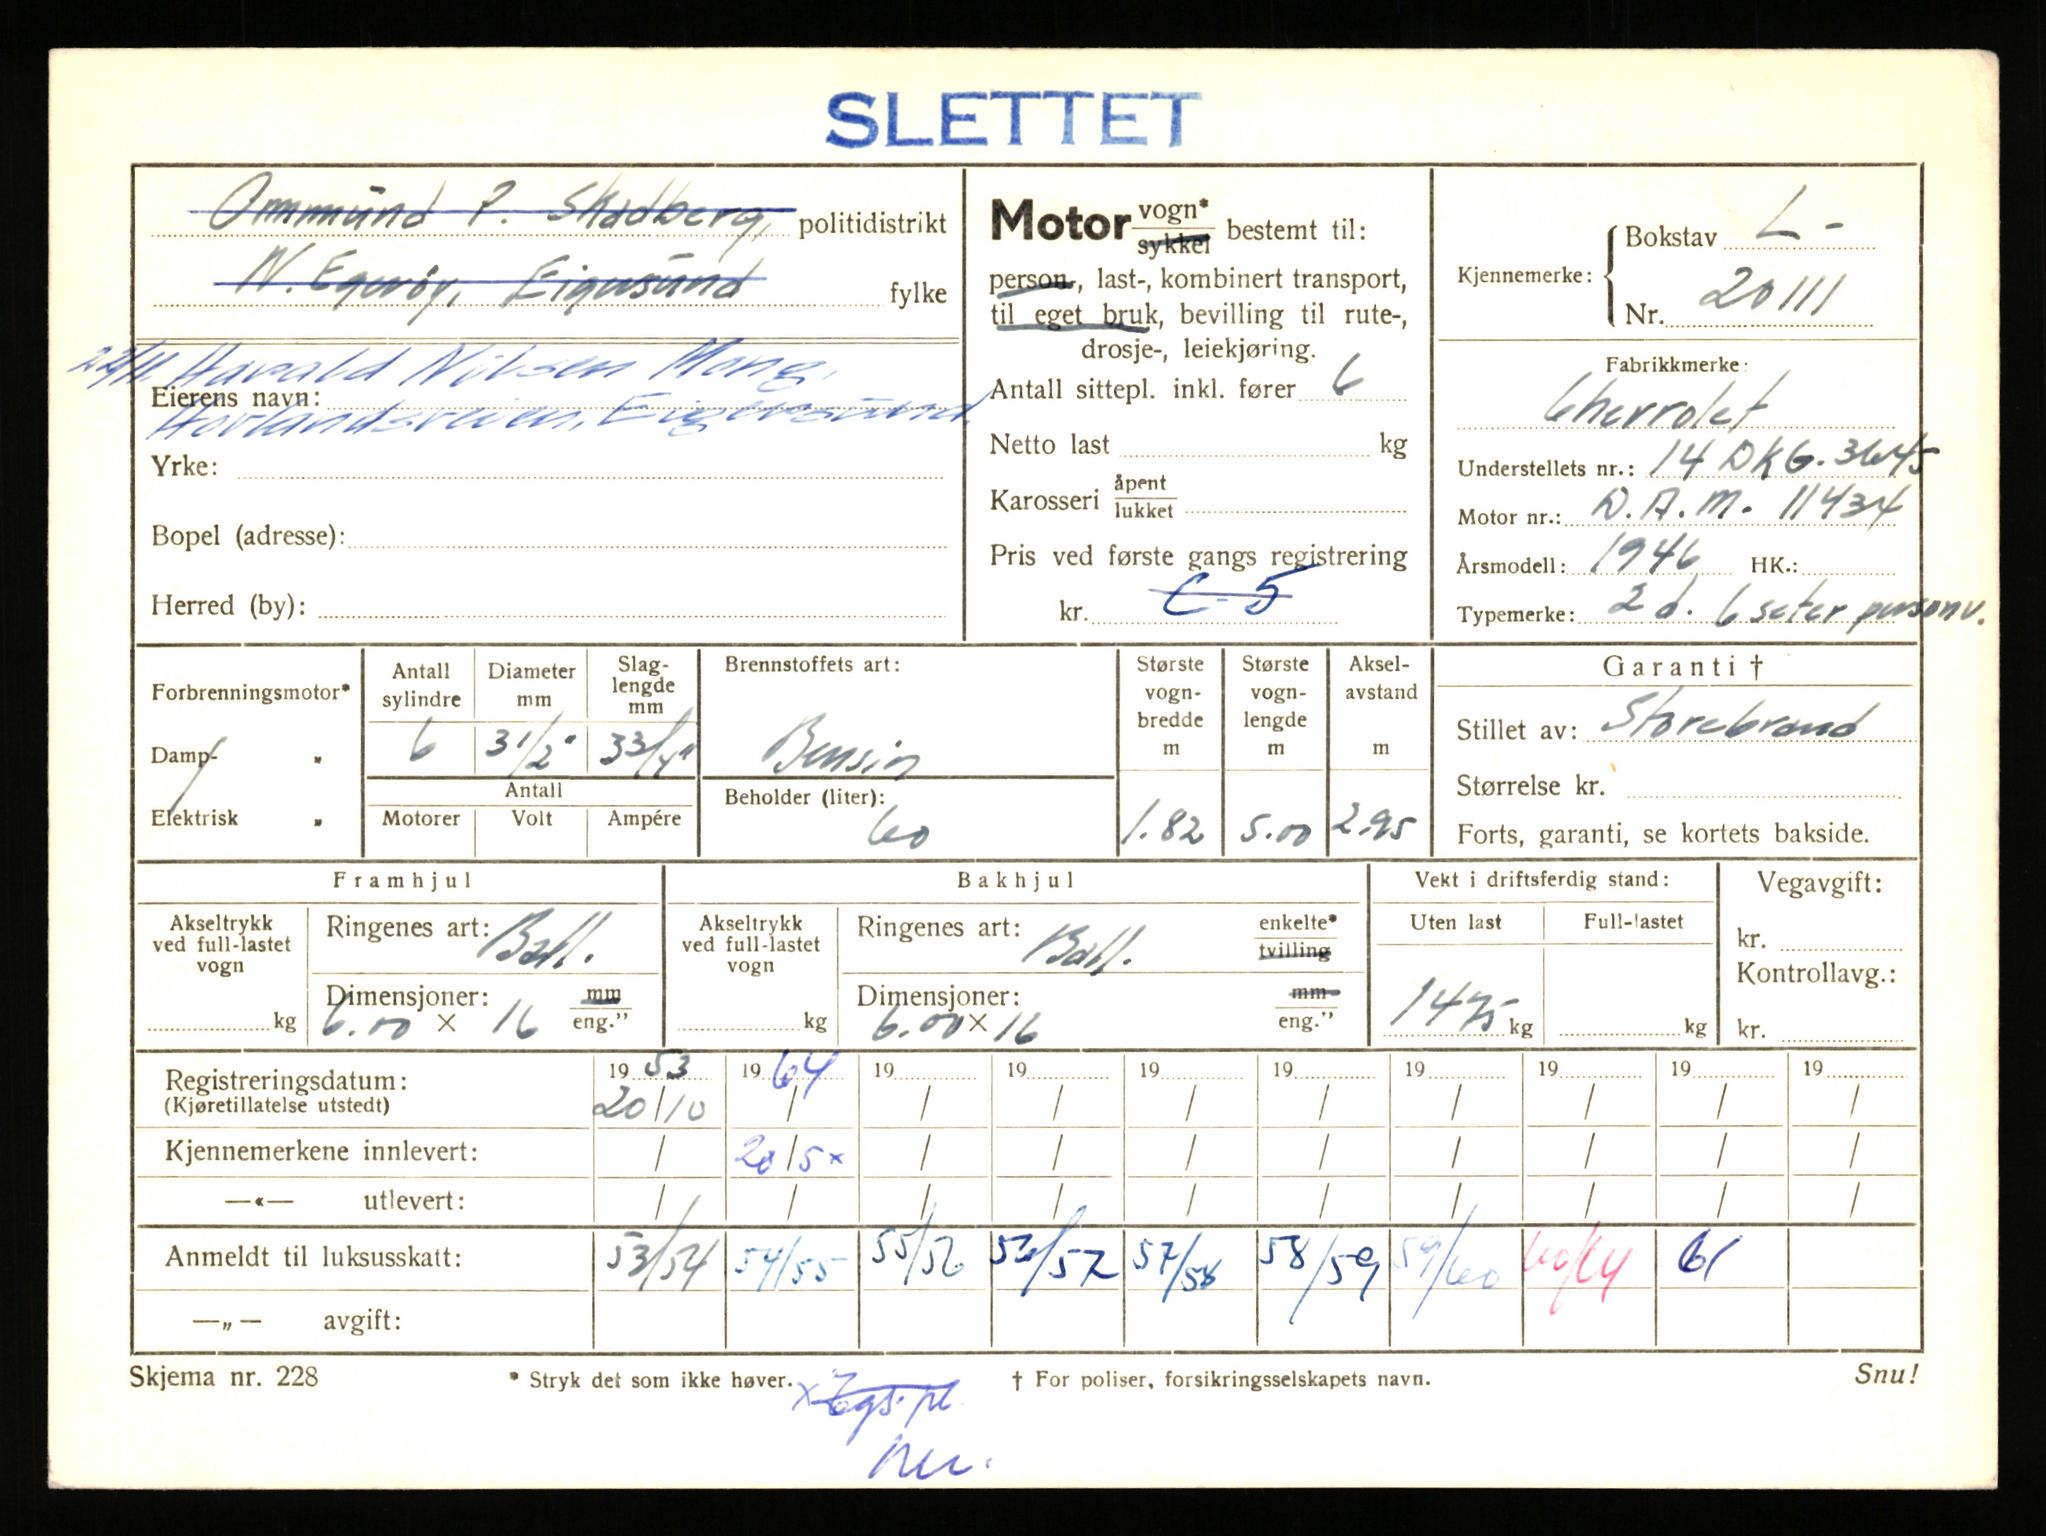 SLETTET
Ommund P. Skadberg, politidistrikt
N. Egerøy, Eigersund fylke
22/11. Harald Nilsen Mong,
Eierens navn:
Hovlandsveien, Eigersund.
Yrke:
Bopel (adresse):
Herred (by):
Motor vogn* sykkel bestemt til:
person-, last-, kombinert transport,
til eget bruk, bevilling til rute-,
drosje-, leiekjøring.
Antall sittepl. inkl. fører 6
Netto last kg
Karosseri åpent lukket
Pris ved første gangs registrering
kr. C-5
Kjennemerke: Bokstav L-
Nr. 20111
Fabrikkmerke:
Chevrolet
Understellets nr.: 14 DKG. 3645
Motor nr.: D.A.M. 11434
Årsmodell: 1946 HK.:
Typemerke: 2 d. 6 seter personv.
Forbrenningsmotor*
Damp- "
Elektrisk "
Antall sylindre 6
Diameter mm 3 1/2"
Slag-lengde mm 3 3/4"
Antall
Motorer Volt Ampére
Brennstoffets art:
Bensin
Beholder (liter):
60
Største vogn-bredde m 1.82
Største vogn-lengde m 5.00
Aksel-avstand m 2.95
Garanti †
Stillet av: Storebrand
Størrelse kr.
Forts, garanti, se kortets bakside.
Framhjul
Akseltrykk ved full-lastet vogn kg
Ringenes art: Ball.
Dimensjoner: mm
6.00 × 16 eng."
Bakhjul
Akseltrykk ved full-lastet vogn kg
Ringenes art: Ball. enkelte* tvilling
Dimensjoner: mm
6.00 × 16 eng."
Vekt i driftsferdig stand:
Uten last Full-lastet
1475 kg kg
Vegavgift:
kr.
Kontrollavg.:
kr.
Registreringsdatum: 19 53 19 64 19 19 19 19 19 19 19 19
(Kjøretillatelse utstedt) 20/10 / / / / / / / / /
Kjennemerkene innlevert: / 20/5 × / / / / / / / /
—«— utlevert: / / / / / / / / / /
Anmeldt til luksusskatt: 53/54 54/55 55/56 56/57 57/58 58/59 59/60 60/64 61
—„— avgift:
Skjema nr. 228 * Stryk det som ikke høver. † For poliser, forsikringsselskapets navn. Snu!